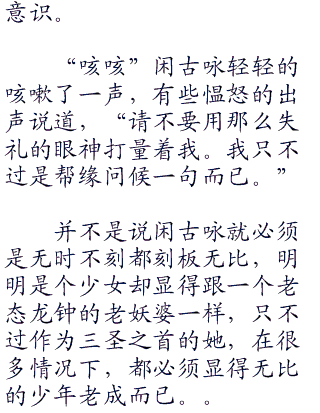 意识。
“咳咳”闲古咏轻轻的
咳嗽了一声，有些愠怒的出
声说道，“请不要用那么失
礼的眼神打量着我。我只不
过是帮缘问候一句而已。”
并不是说闲古咏就必须
是无时不刻都刻板无比，明
明是个少女却显得跟一个老
态龙钟的老妖婆一样，只不
过作为三圣之首的她，在很
多情况下，都必须显得无比
的少年老成而已。。